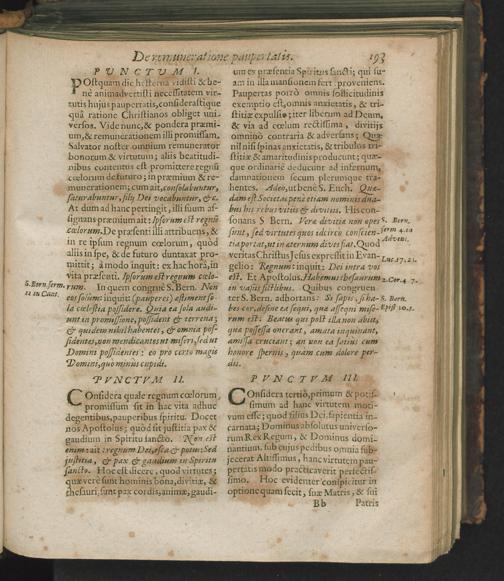 De remuneratione paupertatis. 193
PUNCTUM I.
POstquam die hesterna vidisti & be-
nè animadvertisti necessitatem vir-
tutis hujus paupertatis, considerastique
quâ ratione Christianos obliget uni-
versos. Vide nunc, & pondera præmi-
um, & remunerationem illi promissam.
Salvator noster omnium remunerator
bonorum & virtutum; aliis beatitudi-
nibus contentus est promittere regnũ
cœlorum de futuro; in præmium & re-
munerationem; cum ait, consolabuntur,
saturabuntur, filij Dei vocabuntur, &c.
At dum ad hanc pertingit, illi suum as-
signans præmium ait: Ipsorum est regnũ
cœlorum. De præsenti illi attribuens, &
in re ipsum regnum cœlorum, quòd
aliis in spe, & de futuro duntaxat pro-
mittit; à modo inquit: ex hac horâ, in
vita præsenti. Ipsorum est regnum cœlo-
rum. In quem congruè S. Bern. Non
eos solùm: inquit (pauperes) æstimens so-
la cœlestia possidere. Quia ea sola audi-
unt in promissione, possident & terrena;
& quidem nihil habentes, & omnia pos-
sidentes, non mendicantes ut miseri, sed ut
Domini possidentes: eo pro certo magis
Domini, quò minùs cupidi.
S. Bern. serm.
21 in Cant.
PUNCTUM II.
COnsidera quale regnum cœlorum,
promissum sit in hac vita adhuc
degentibus, pauperibus spiritu: Docet
nos Apostolus; quòd sit justitia pax &
gaudium in Spiritu sancto. Non est
enim: ait: regnum Dei, esca & potus: Sed
justitia, & pax & gaudium in Spiritu
sancto. Hoc est dicere, quod virtutes;
quæ verè sunt hominis bona, divitiæ, &
thesauri, sunt pax cordis, animæ, gaudi-
um ex præsentia Spiritus sancti; qui su-
am in illa mansionem fert, proveniens.
Paupertas porrò omnis sollicitudinis
exemptio est, omnis anxietatis, & tri-
stitiæ expulsio; iter liberum ad Deum,
& via ad cœlum rectissima, divitijs
omninò contraria & adversans; Quæ
nil nisi spinas anxietatis, & tribulos tri-
stitiæ & amaritudinis producunt; quæ-
que ordinariè deducunt ad infernum,
damnationem secum plerumque tra-
hentes. Adeo, ut benè S. Euch. Quæ-
dam est Societas penè etiam nominis dua-
bus his rebus vitiis & divitiis. His con-
sonans S. Bern. Veræ divitiæ non opes
sunt, sed virtutes quas idcirco conscien-
tia portat, ut in æternum dives fiat. Quod
veritas Christus Jesus expressit in Evan-
gelio: Regnum: inquit: Dei intra vos
est. Et Apostolus. Habemus thesaurum
in vasis fictilibus. Quibus congruen-
ter S. Bern. adhortans: Si sapis, si ha-
bes cor, desine ea sequi, quæ assequi mise-
rum est: Beatus qui post illa non abiit,
quæ possessa onerant, amata inquinant,
amissa cruciant; an non ea satius cum
honore spernis, quam cum dolore per-
dis.
S. Bern.
serm. 4. in
Advent.
Luc. 17. 21.
2. Cor. 4 7.
S. Bern.
Epist. 103.
PUNCTUM III.
COnsidera tertiò, primum & potis-
simum ad hanc virtutem moti-
vum esse; quod filius Dei, sapientia in-
carnata; Dominus absolutus universo-
rum Rex Regum, & Dominus domi-
nantium, sub cujus pedibus omnia sub-
jecerat Altissimus, hanc virtutem pau-
pertatis modo practicaverit perfectis-
simo. Hoc evidenter conspicitur in
optione quam fecit, suæ Matris, & sui
Bb Patris